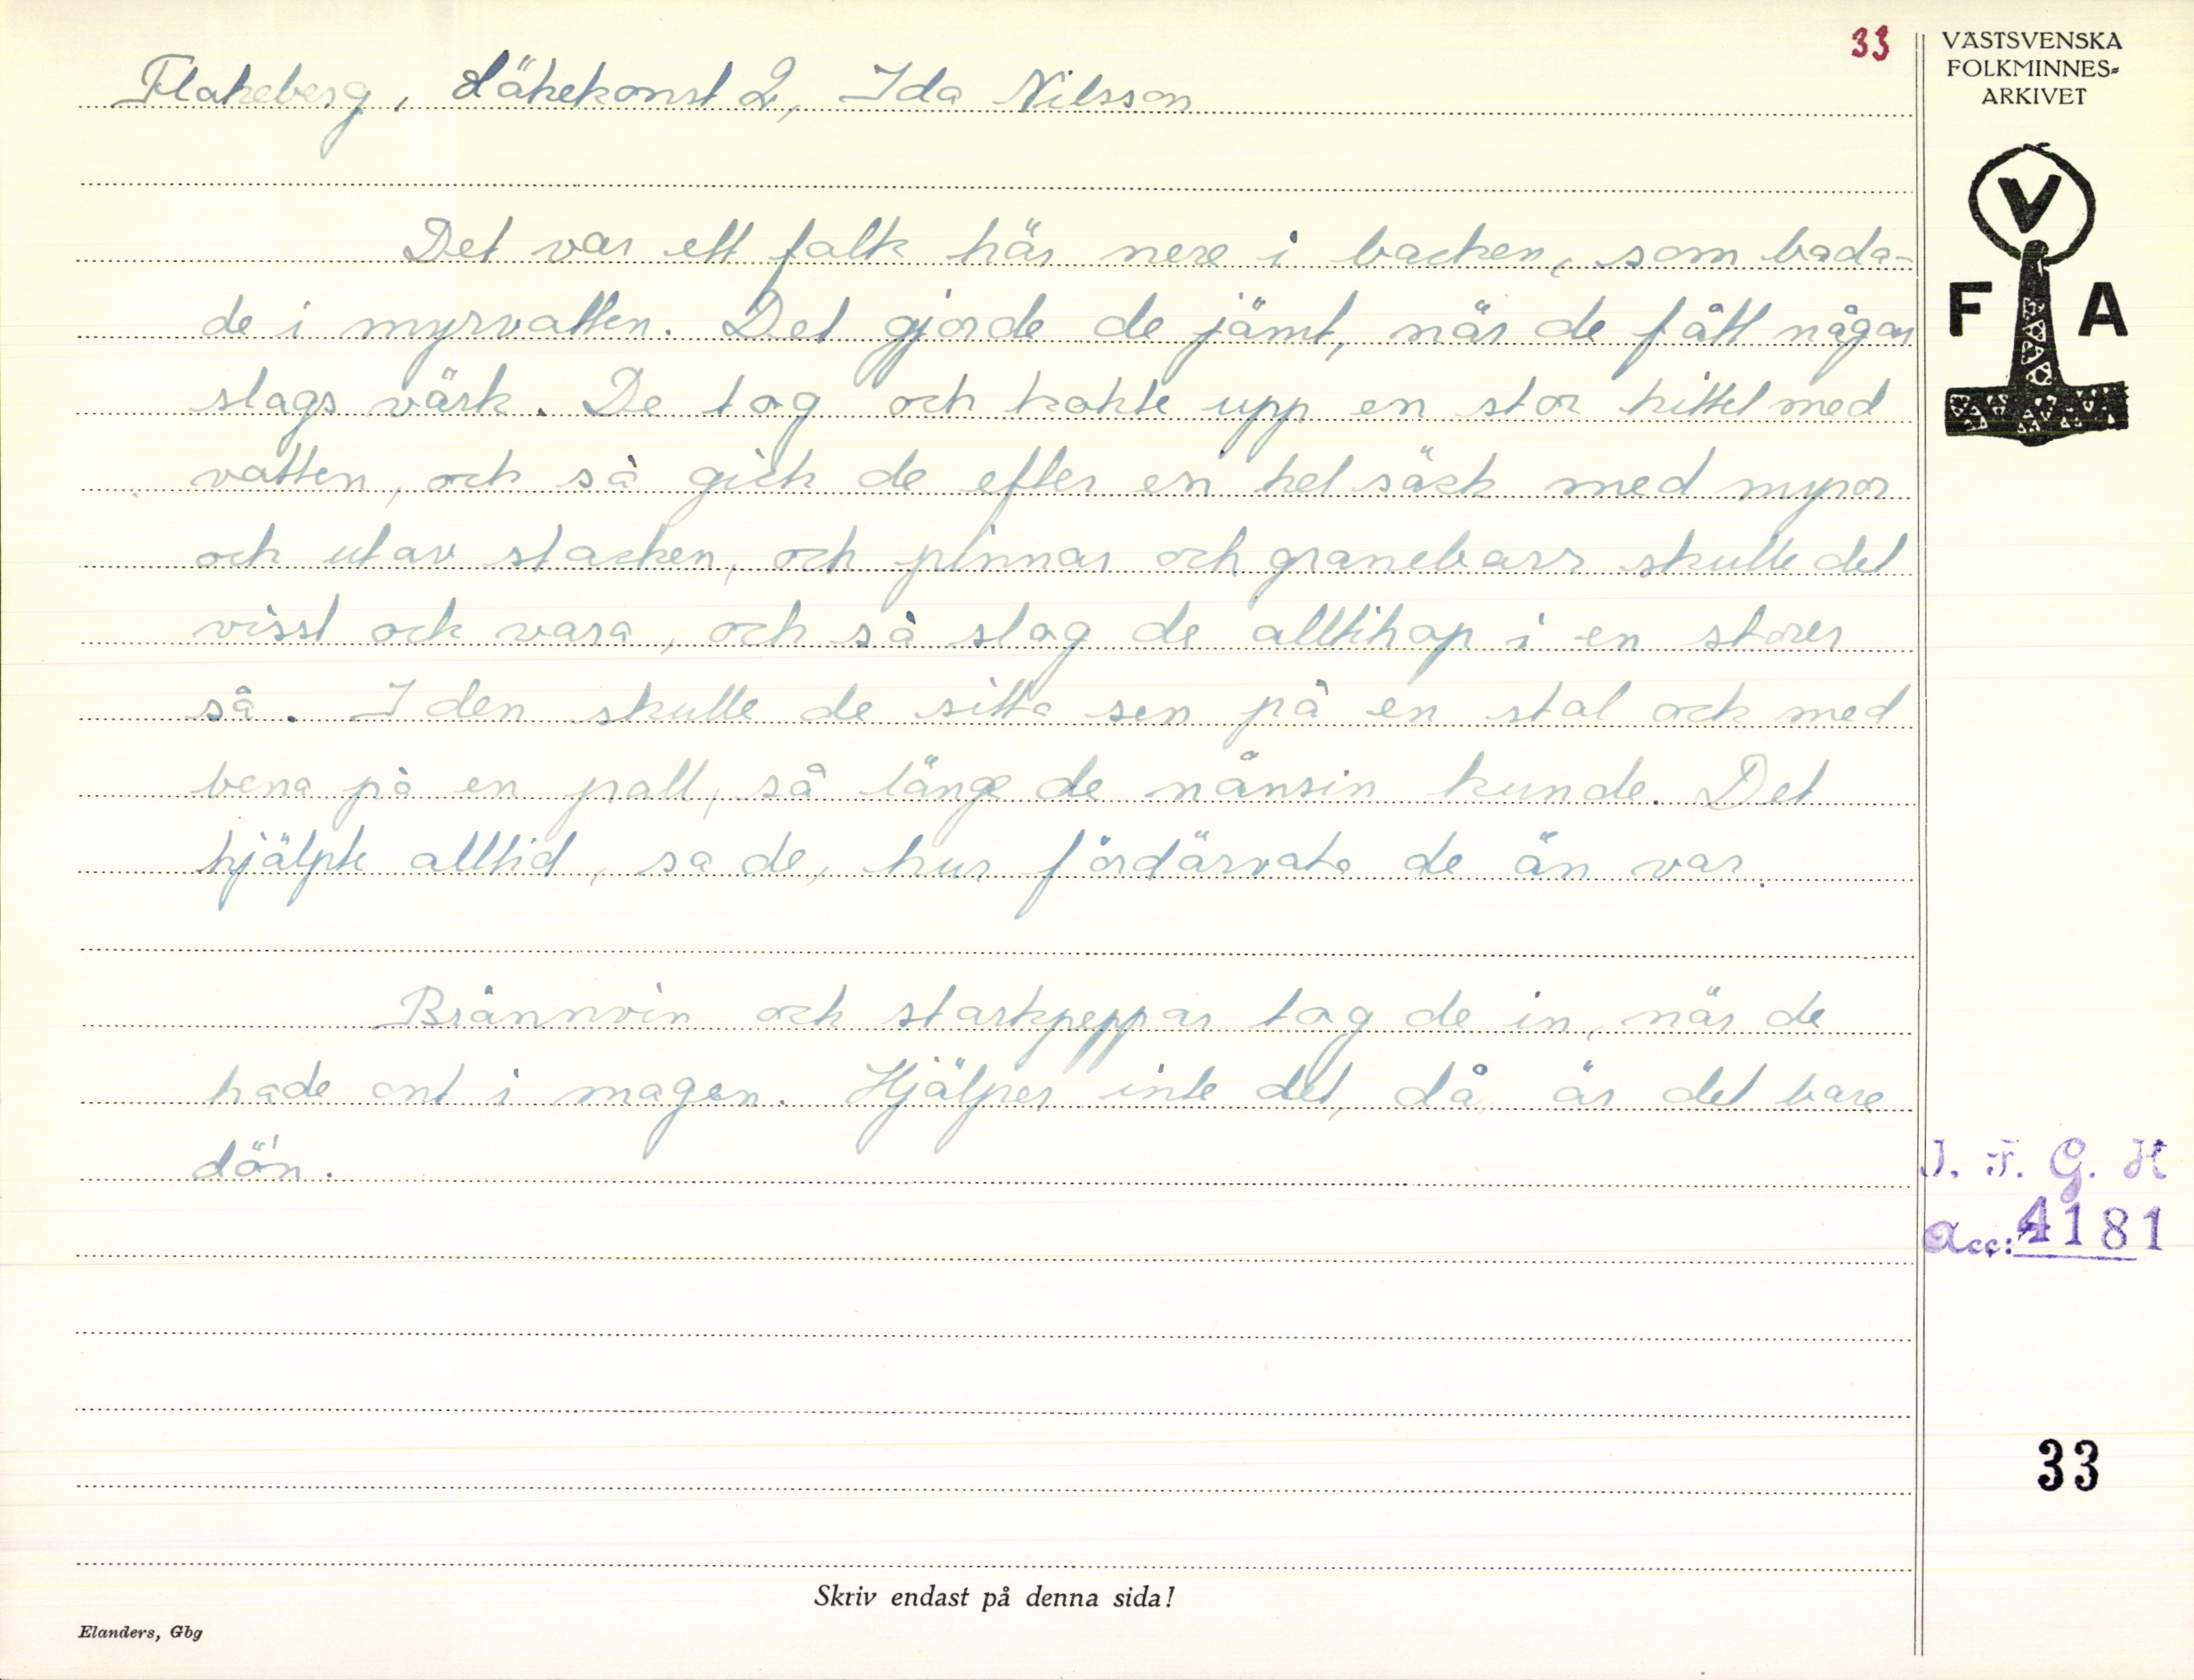 33
VÄSTSVENSKA
FOLKMINNES-
ARKIVET
V
F A
Flakeberg, Läkekonst 2, Ida Nilsson
Det var ett folk här nere i backen, som bada-
de i myrvatten. Det gjorde de jämt, när de fått någon
slags värk. De tog och kokte upp en stor kittel med
vatten, och så gick de efter en hel säck med myror
och utav stacken, och pinnar och granebarr skulle det
visst ock vara, och så slog de alltihop i en storer
så. I den skulle de sitta sen på en stol och med
bena på en pall, så länge de nånsin kunde. Det
hjälpte alltid, sa de, hur fördärvate de än var.
Brännvin och starkpeppar tog de in, när de
hade ont i magen. Hjälper inte det, då är det bare
dö'n.
I. F. G. H
Acc: 4181
33
Skriv endast på denna sida!
Elanders, Gbg